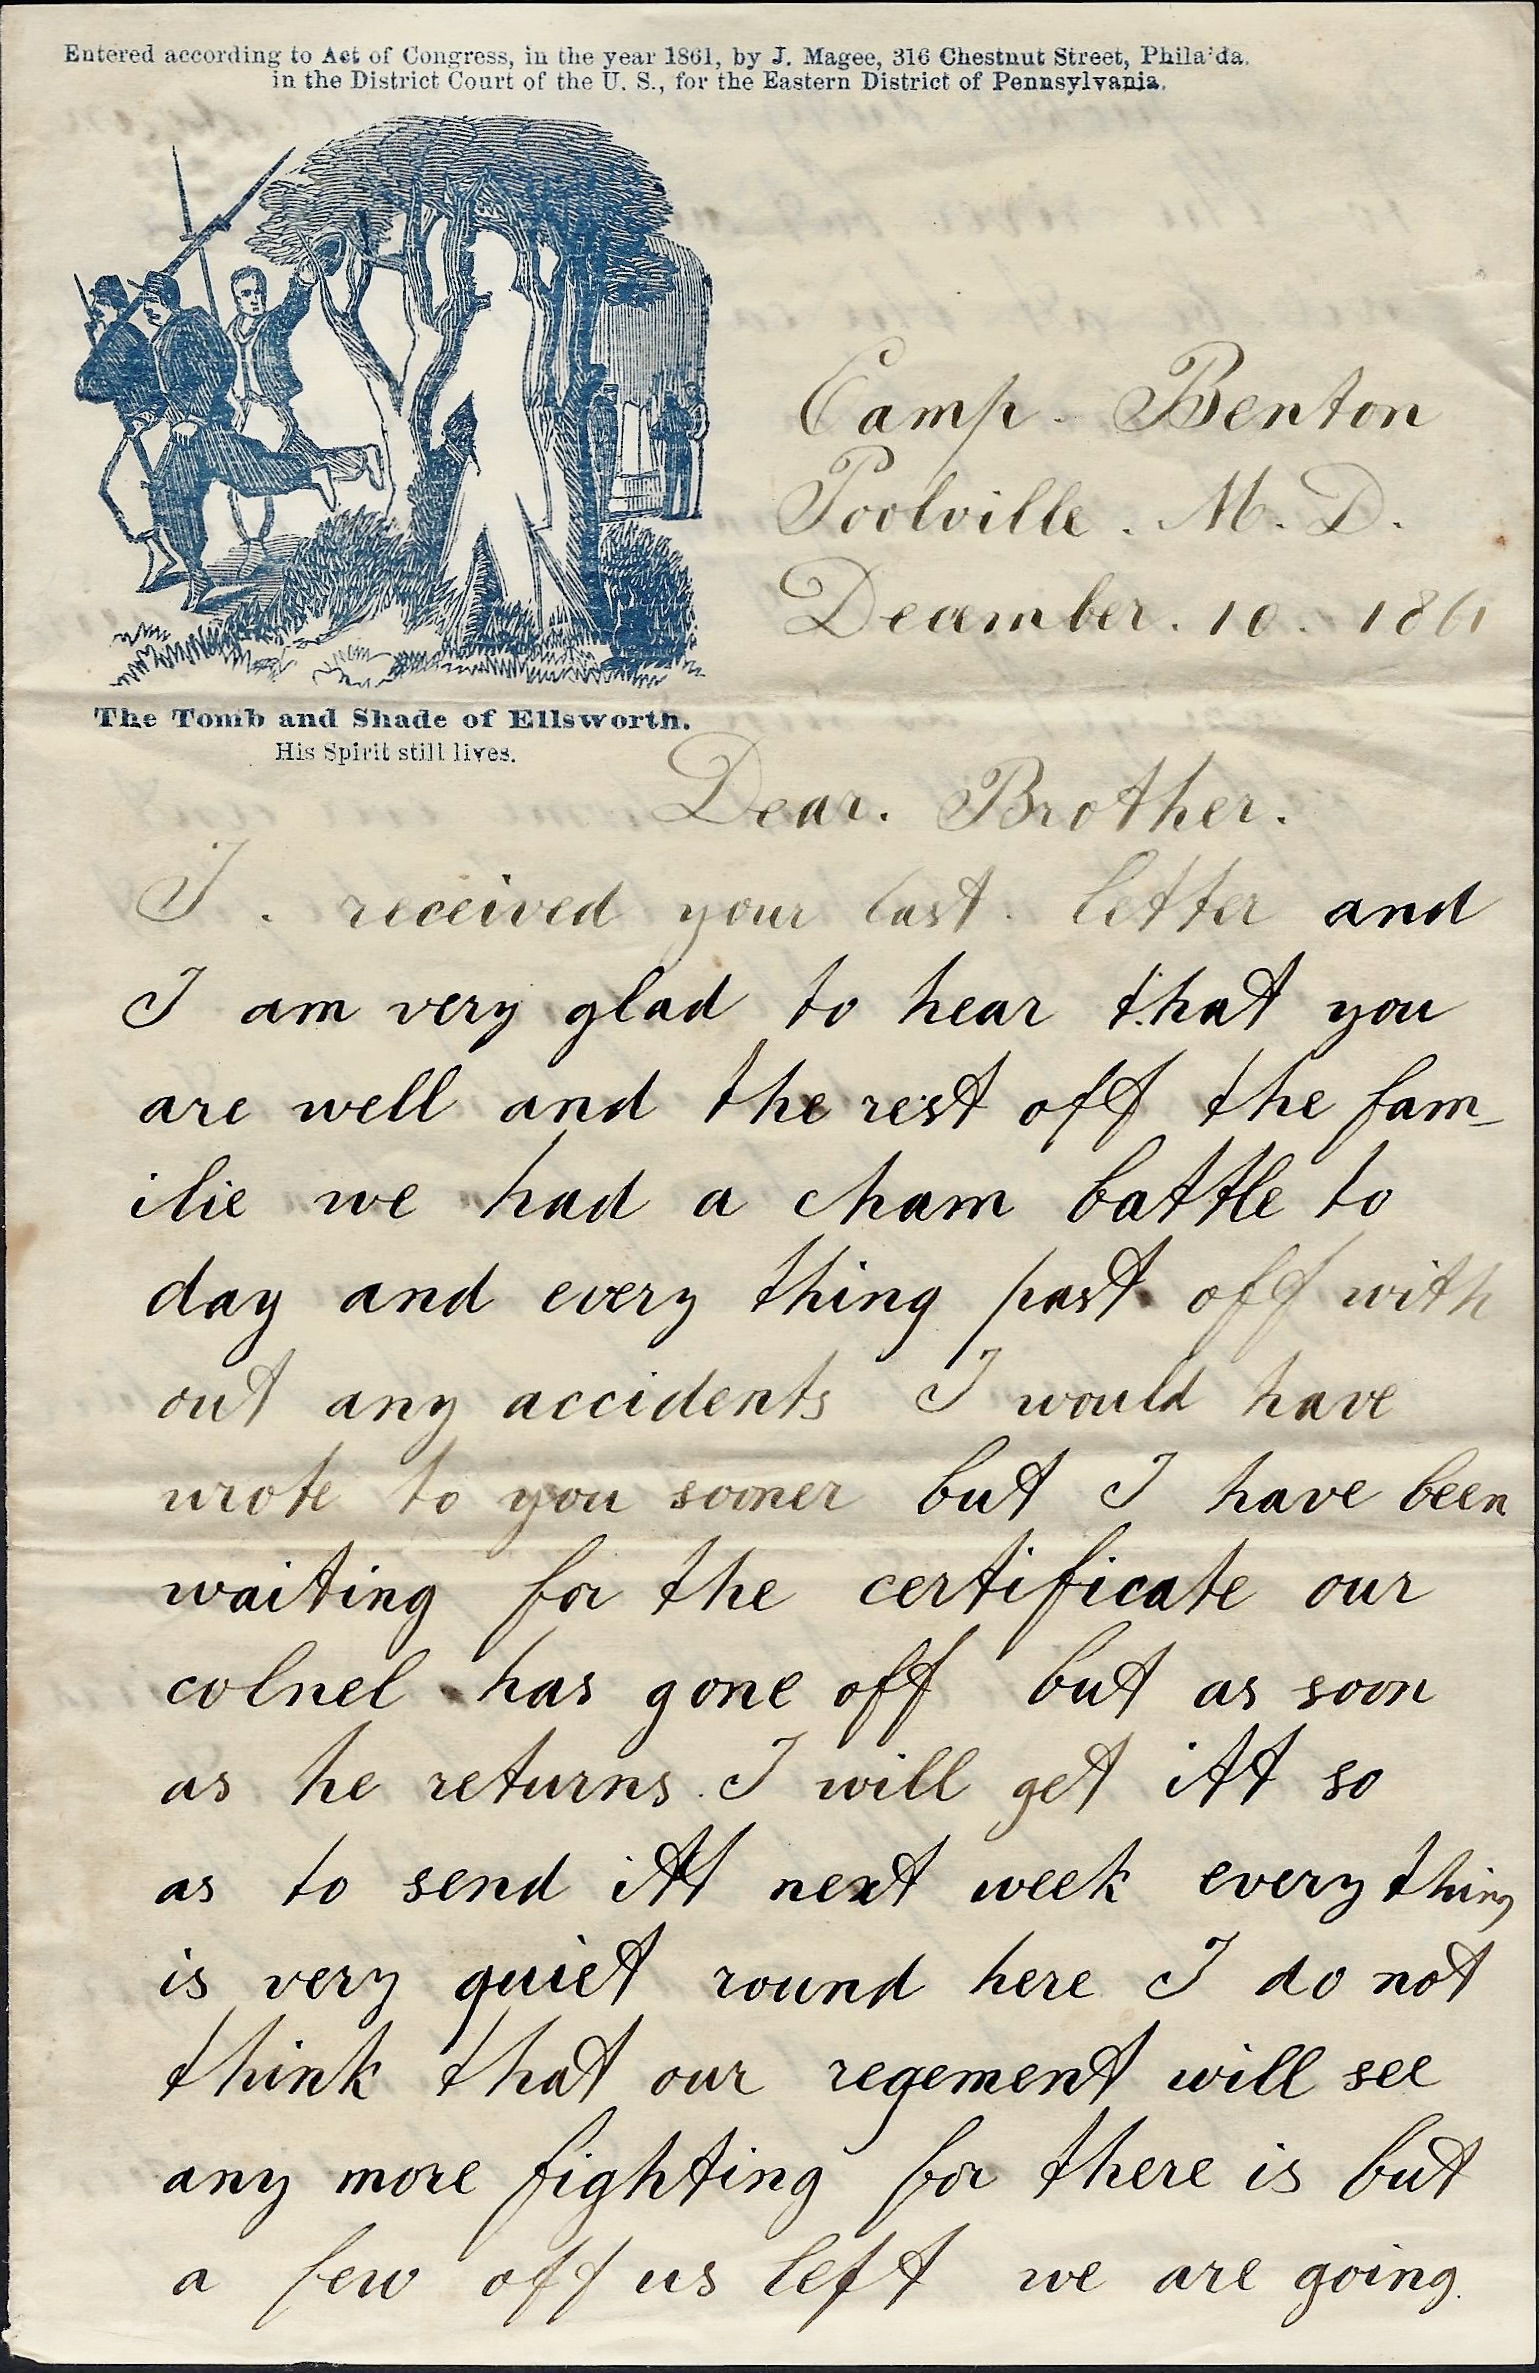 Entered according to Act of Congress, in the year 1861, by J. Magee, 316 Chestnut Street, Phila'da.
in the District Court of the U. S., for the Eastern District of Pennsylvania.
Camp. Benton
Poolville. M. D.
December. 10. 1861
The Tomb and Shade of Ellsworth.
His Spirit still lives.
Dear. Brother.
I. received your last. letter and
I am very glad to hear that you
are well and the rest off the fam-
ilie we had a cham battle to
day and every thing past off with
out any accidents I would have
wrote to you sooner but I have been
waiting for the certificate our
colnel has gone off but as soon
as he returns. I will get itt so
as to send itt next week every thing
is very quiet round here I do not
think that our regement will see
any more fighting for there is but
a few off us left we are going.